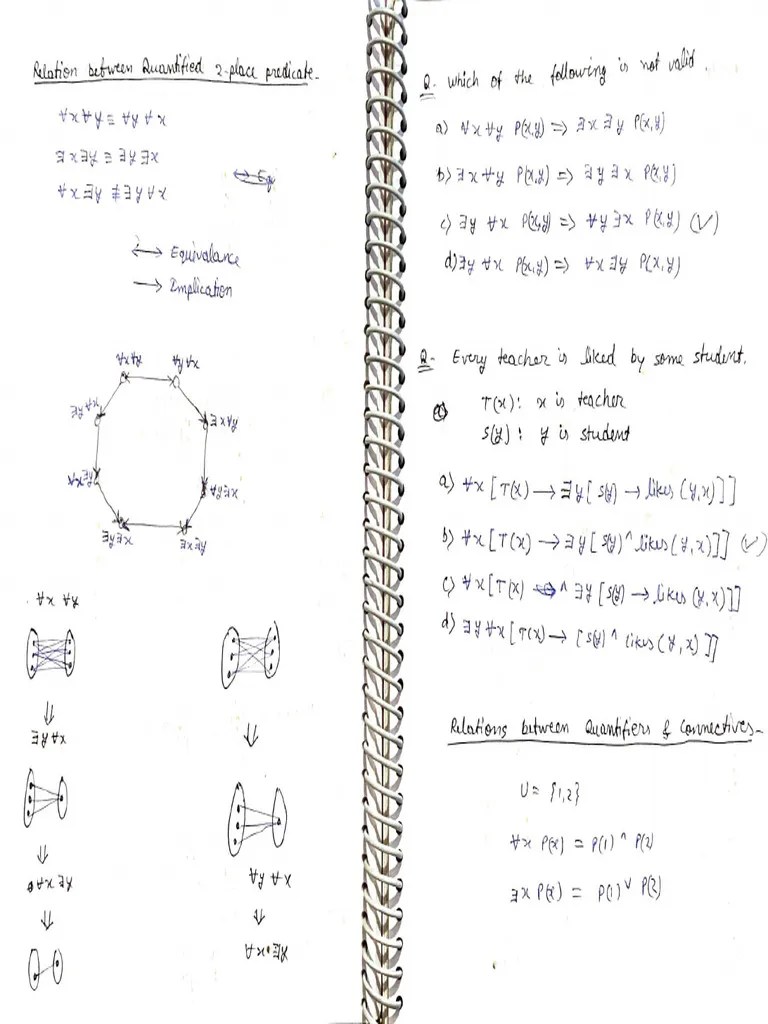 Relation between Quantified 2-place predicate.
∀x ∀y ≡ ∀y ∀x
∃x ∃y ≡ ∃y ∃x
∀x ∃y ≢ ∃y ∀x
⟷ Equivalance
⟶ Implication
∀x ∀y
∀y ∀x
∃y ∀x
∃x ∀y
∀x ∃y
∀y ∃x
∃y ∃x
∃x ∃y
∀x ∀y
⇓
∃y ∀x
⇓
∀x ∃y
⇓
⇓
∀y ∀x
⇓
Q. Which of the following is not valid.
a) ∀x ∀y P(x,y) => ∃x ∃y P(x,y)
b) ∃x ∀y P(x,y) => ∃y ∃x P(x,y)
c) ∃y ∀x P(x,y) => ∀y ∃x P(x,y) (✓)
d) ∃y ∀x P(x,y) => ∀x ∃y P(x,y)
Q- Every teacher is liked by some student.
T(x): x is teacher
S(y): y is student
a) ∀x [T(x) → ∃y [S(y) → likes (y,x)]]
b) ∀x [T(x) → ∃y [S(y) ^ likes (y,x)]] (✓)
c) ∀x [T(x) ^ ∃y [S(y) → likes (y,x)]]
d) ∃y ∀x [T(x) → [S(y) ^ likes (y,x)]]
Relations between Quantifiers & Connectives-
U = {1,2}
∀x P(x) = P(1) ^ P(2)
∃x P(x) = P(1) ∨ P(2)